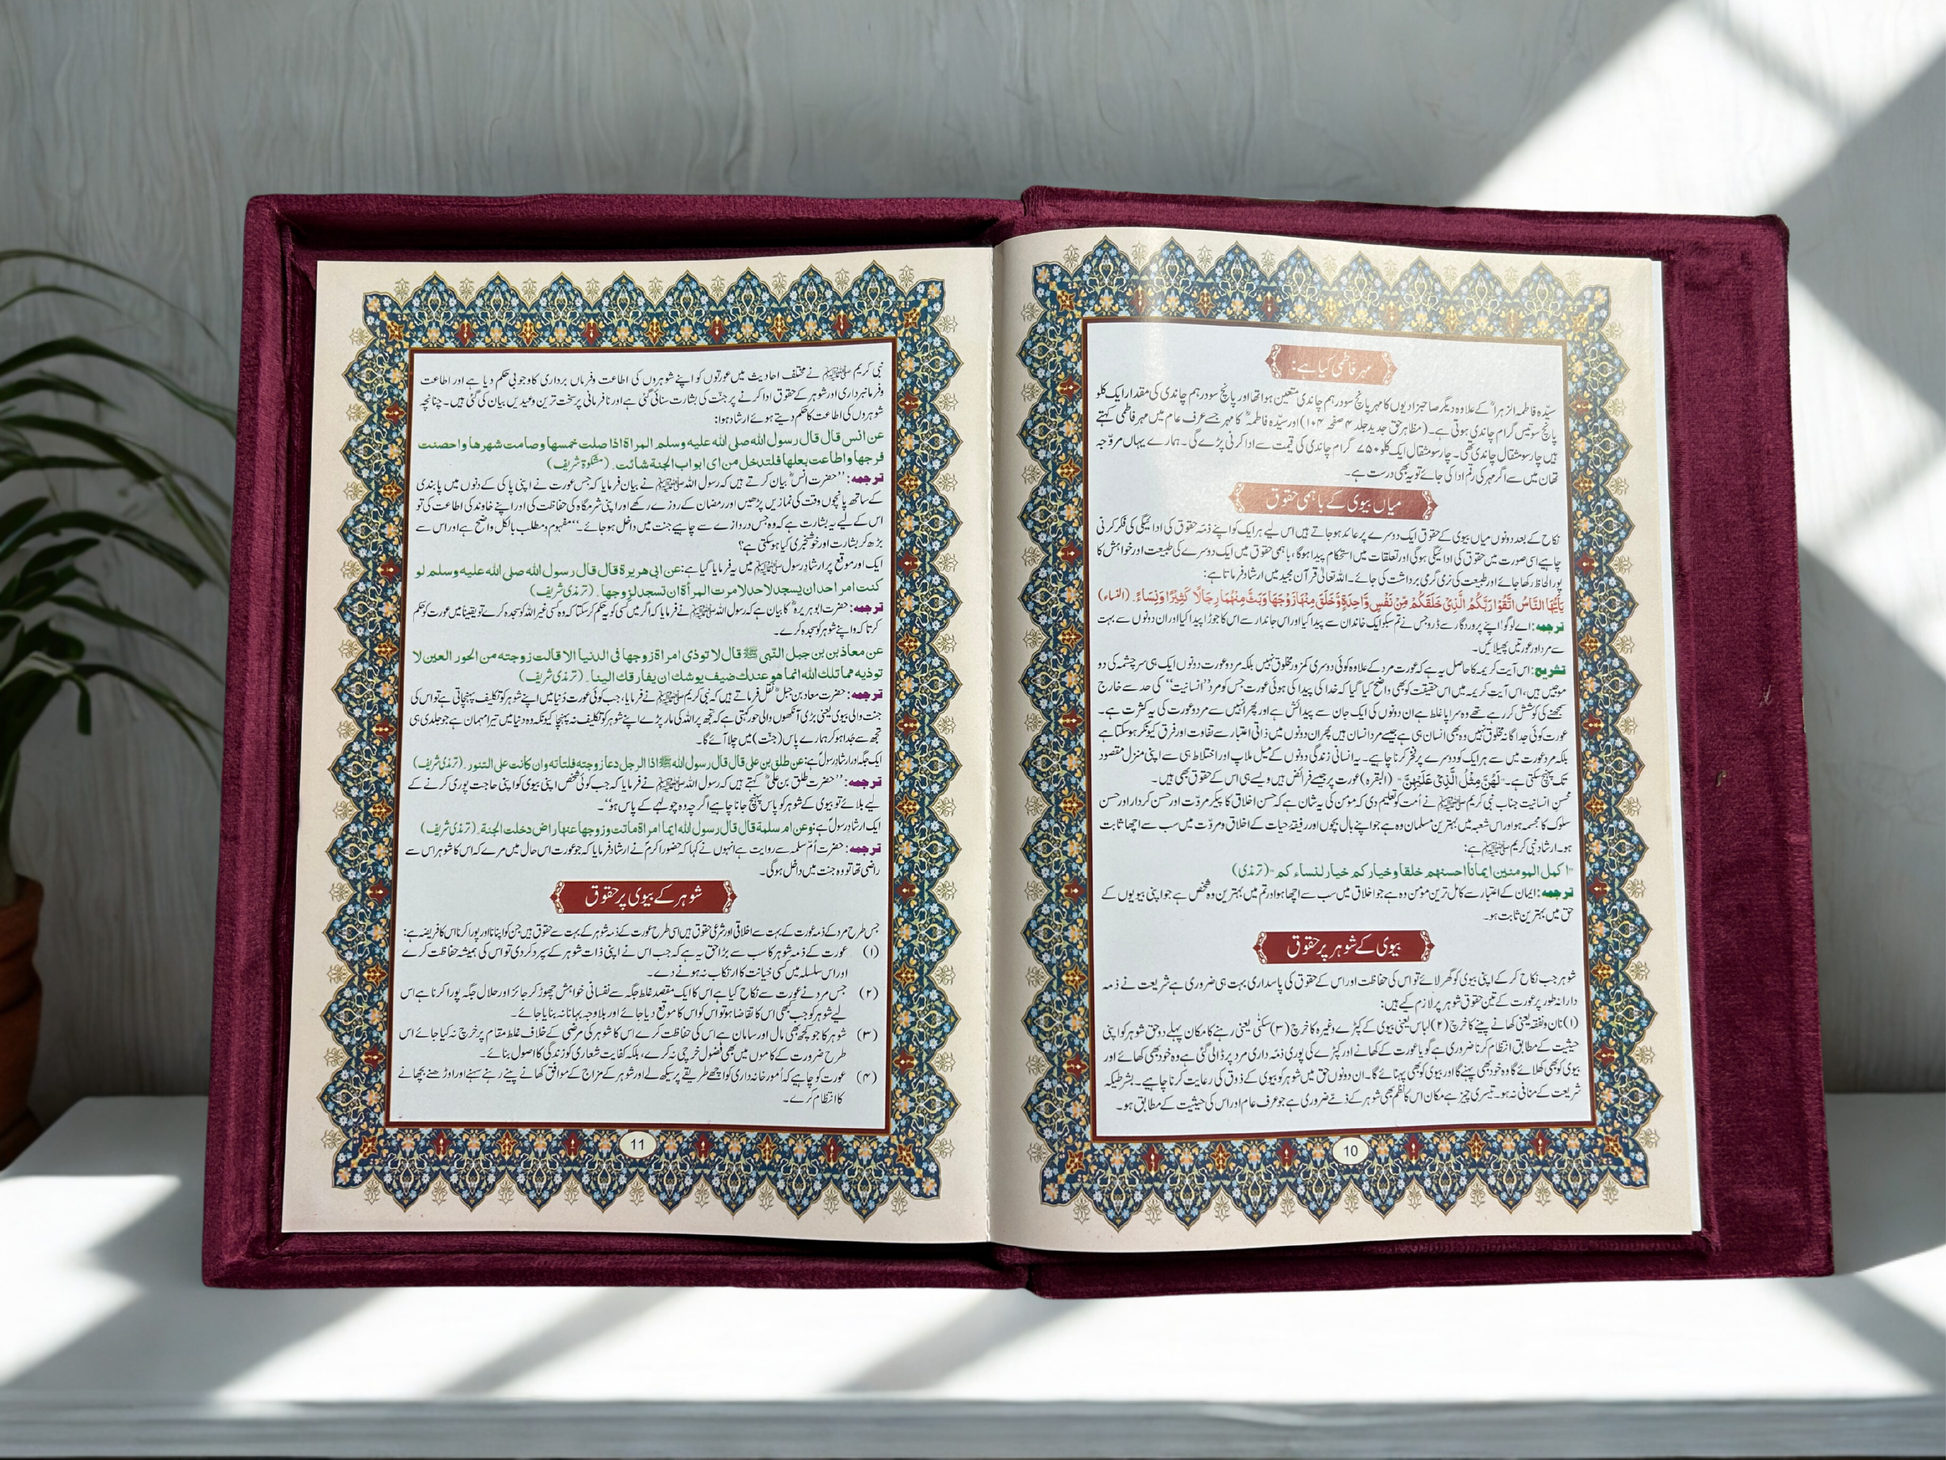 مہر فاطمی کیا ہے:
سیّدہ فاطمہ الزہراؓ کے علاوہ دیگر صاحبزادیوں کا مہر پانچ سو درہم چاندی متعین ہوا تھا اور پانچ سو درہم چاندی کی مقدار ایک کلو
پانچ سو تیس گرام چاندی ہوتی ہے۔ (مظاہر حق جدید جلد ۴ صفحہ ۱۰۴) اور سیّدہ فاطمہؓ کا مہر جسے عرف عام میں مہر فاطمی کہتے
ہیں چار سو مثقال چاندی تھی۔ چار سو مثقال ایک کلو ۷۵۰ گرام چاندی کی قیمت سے ادا کرنی پڑے گی۔ ہمارے یہاں مروّجہ
تھان میں سے اگر مہر کی رقم ادا کی جائے تو یہ بھی درست ہے۔
میاں بیوی کے باہمی حقوق
نکاح کے بعد دونوں میاں بیوی کے حقوق ایک دوسرے پر عائد ہو جاتے ہیں اس لیے ہر ایک کو اپنے ذمّہ حقوق کی ادائیگی کی فکر کرنی
چاہیے اسی صورت میں حقوق کی ادائیگی ہوگی اور تعلقات میں استحکام پیدا ہوگا، باہمی حقوق میں ایک دوسرے کی طبیعت اور خواہش کا
پورا لحاظ رکھا جائے اور طبیعت کی نرمی گرمی برداشت کی جائے۔ اللہ تعالیٰ قرآن مجید میں ارشاد فرماتا ہے:
يٰٓاَيُّهَا النَّاسُ اتَّقُوْا رَبَّكُمُ الَّذِىْ خَلَقَكُمْ مِّنْ نَّفْسٍ وَّاحِدَةٍ وَّخَلَقَ مِنْهَا زَوْجَهَا وَبَثَّ مِنْهُمَا رِجَالًا كَثِيْرًا وَّنِسَآءً۔ (النساء)
ترجمہ: اے لوگو! اپنے پروردگار سے ڈرو جس نے تم سب کو ایک خاندان سے پیدا کیا اور اس جاندار سے اس کا جوڑا پیدا کیا اور ان دونوں سے بہت
سے مرد اور عورتیں پھیلائیں۔
تشریح: اس آیت کریمہ کا حاصل یہ ہے کہ عورت مرد کے علاوہ کوئی دوسری کمزور مخلوق نہیں بلکہ مرد و عورت دونوں ایک ہی سرچشمہ کی دو
موجیں ہیں، اس آیت کریمہ میں اس حقیقت کو بھی واضح کیا گیا کہ خدا کی پیدا کی ہوئی عورت جس کو مرد ’’انسانیت‘‘ کی حد سے خارج
سمجھنے کی کوشش کر رہے تھے وہ سراپا غلط ہے ان دونوں کی ایک جان سے پیدائش ہے اور پھر انہیں سے مرد و عورت کی یہ کثرت ہے۔
عورت کوئی جداگانہ مخلوق نہیں وہ بھی انسان ہی ہے جیسے مرد انسان ہیں پھر ان دونوں میں ذاتی اعتبار سے تفاوت اور فرق کیونکر ہو سکتا ہے
بلکہ مرد عورت میں سے ہر ایک کو دوسرے پر فخر کرنا چاہیے۔ یہ انسانی زندگی دونوں کے میل ملاپ اور اختلاط ہی سے اپنی منزل مقصود
تک پہنچ سکتی ہے۔ ”لَهُنَّ مِثْلُ الَّذِىْ عَلَيْهِنَّ“ (البقرہ) عورت پر جیسے فرائض ہیں ویسے ہی اس کے حقوق بھی ہیں۔
محسن انسانیت جناب نبی کریم ﷺ نے اُمت کو تعلیم دی کہ مومن کی یہ شان ہے کہ حسن اخلاق کا پیکر مروّت اور حسن کردار اور حسن
سلوک کا مجسمہ ہو اور اس شعبہ میں بہترین مسلمان وہ ہے جو اپنے بال بچوں اور رفیقۂ حیات کے اخلاق و مروّت میں سب سے اچھا ثابت
ہو۔ ارشاد نبی کریم ﷺ ہے:
”اکمل المومنین ایمانا احسنھم خلقا و خیارکم خیار لنساءکم“ (ترمذی)
ترجمہ: ایمان کے اعتبار سے کامل ترین مؤمن وہ ہے جو اخلاق میں سب سے اچھا ہو اور تم میں بہترین وہ شخص ہے جو اپنی بیویوں کے
حق میں بہترین ثابت ہو۔
بیوی کے شوہر پر حقوق
شوہر جب نکاح کر کے اپنی بیوی کو گھر لائے تو اس کی حفاظت اور اس کے حقوق کی پاسداری بہت ہی ضروری ہے شریعت نے ذمہ
دارانہ طور پر عورت کے تین حقوق شوہر پر لازم کیے ہیں:
(۱) نان و نفقہ یعنی کھانے پینے کا خرچ (۲) لباس یعنی بیوی کے کپڑے وغیرہ کا خرچ (۳) سکنیٰ یعنی رہنے کا مکان پہلے دو حق شوہر کو اپنی
حیثیت کے مطابق انتظام کرنا ضروری ہے گویا عورت کے کھانے اور کپڑے کی پوری ذمّہ داری مرد پر ڈالی گئی ہے وہ خود بھی کھائے اور
بیوی کو بھی کھلائے گا وہ خود بھی پہنے گا اور بیوی کو بھی پہنائے گا۔ ان دونوں حق میں شوہر کو بیوی کے ذوق کی رعایت کرنا چاہیے۔ بشرطیکہ
شریعت کے منافی نہ ہو۔ تیسری چیز ہے مکان اس کا نظم بھی شوہر کے ذمّے ضروری ہے جو عرف عام اور اس کی حیثیت کے مطابق ہو۔
10
نبی کریم ﷺ نے مختلف احادیث میں عورتوں کو اپنے شوہروں کی اطاعت و فرماں برداری کا وجوبی حکم دیا ہے اور اطاعت
و فرمانبرداری اور شوہر کے حقوق ادا کرنے پر جنّت کی بشارت سنائی گئی ہے اور نافرمانی پر سخت ترین وعیدیں بیان کی گئی ہیں۔ چنانچہ
شوہروں کی اطاعت کا حکم دیتے ہوئے ارشاد ہوا:
عن انس قال قال رسول الله صلى الله عليه وسلم المراة اذا صلت خمسها وصامت شهرها واحصنت
فرجها واطاعت بعلها فلتدخل من اى ابواب الجنة شائت۔ (مشکوٰۃ شریف)
ترجمہ: ’’حضرت انسؓ بیان کرتے ہیں کہ رسول اللہ ﷺ نے بیان فرمایا کہ جس عورت نے اپنی پاکی کے دنوں میں پابندی
کے ساتھ پانچوں وقت کی نمازیں پڑھیں اور رمضان کے روزے رکھے اور اپنی شرمگاہ کی حفاظت کی اور اپنے خاوند کی اطاعت کی تو
اس کے لیے یہ بشارت ہے کہ وہ جس دروازے سے چاہیے جنت میں داخل ہو جائے۔‘‘ مفہوم و مطلب بالکل واضح ہے اور اس سے
بڑھ کر بشارت اور خوشخبری کیا ہو سکتی ہے؟
ایک اور موقع پر ارشادِ رسول ﷺ میں یہ فرمایا گیا ہے: عن ابی هريرة قال قال رسول الله صلى الله عليه وسلم لو
كنت امر احد ان يسجد لاحد لامرت المرأة ان تسجد لزوجها۔ (ترمذی شریف)
ترجمہ: حضرت ابوہریرہؓ کا بیان ہے کہ رسول اللہ ﷺ نے فرمایا کہ اگر میں کسی کو یہ حکم کر سکتا کہ وہ کسی غیر اللہ کو سجدہ کرے تو یقیناً میں عورت کو حکم
کرتا کہ وہ اپنے شوہر کو سجدہ کرے۔
عن معاذ بن بن جبل النّبی ﷺ قال لا توذى امراة زوجها فى الدنيا الا قالت زوجته من الحور العين لا
توذيه مما تلك الله انما هو عندك ضيف يوشك ان يفارقك الينا۔ (ترمذی شریف)
ترجمہ: حضرت معاذ بن جبلؓ نقل فرماتے ہیں کہ نبی کریم ﷺ نے فرمایا، جب کوئی عورت دُنیا میں اپنے شوہر کو تکلیف پہنچاتی ہے تو اس کی
جنت والی بیوی یعنی بڑی آنکھوں والی حور کہتی ہے کہ تجھ پر اللہ کی مار پڑے اپنے شوہر کو تکلیف نہ پہنچا کیونکہ وہ دنیا میں تیرا مہمان ہے جو جلد ہی
تجھ سے جدا ہو کر ہمارے پاس (جنّت) میں چلا آئے گا۔
ایک جگہ اور ارشاد رسولؐ ہے: عن طلق بن علی قال قال رسول الله ﷺ اذا الرجل دعا زوجته فلتاته وان كانت على التنور۔ (ترمذی شریف)
ترجمہ: ’’حضرت طلق بن علیؓ کہتے ہیں کہ رسول اللہ ﷺ نے فرمایا کہ جب کوئی شخص اپنی بیوی کو اپنی حاجت پوری کرنے کے
لیے بلائے تو بیوی کے شوہر کو پاس پہنچ جانا چاہیے اگرچہ وہ چولہے کے پاس ہو‘‘۔
ایک ارشاد رسولؐ ہے: وعن ام سلمة قال قال رسول الله ايما امراة ماتت وزوجها عنها راض دخلت الجنة۔ (ترمذی شریف)
ترجمہ: حضرت اُمّ سلمہؓ سے روایت ہے انہوں نے کہا کہ حضور اکرمؐ نے ارشاد فرمایا کہ جو عورت اس حال میں مرے کہ اس کا شوہر اس سے
راضی تھا تو وہ جنت میں داخل ہوگی۔
شوہر کے بیوی پر حقوق
جس طرح مرد کے ذمہ عورت کے بہت سے اخلاقی اور شرعی حقوق ہیں اسی طرح عورت کے ذمہ شوہر کے بہت سے حقوق ہیں جن کو اپنانا اور پورا کرنا اس کا فریضہ ہے:
(۱) عورت کے ذمہ شوہر کا سب سے بڑا حق یہ ہے کہ جب اس نے اپنی ذات شوہر کے سپرد کر دی تو اس کی ہمیشہ حفاظت کرے
اور اس سلسلہ میں کسی خیانت کا ارتکاب نہ ہونے دے۔
(۲) جس مرد نے عورت سے نکاح کیا ہے اس کا ایک مقصد غلط جگہ سے نفسانی خواہش چھوڑ کر جائز اور حلال جگہ پورا کرنا ہے اس
لیے شوہر کو جب کبھی اس کا تقاضا ہو تو اس کو اس کا موقع دیا جائے اور بلا وجہ بہانا نہ بنایا جائے۔
(۳) شوہر کا جو کچھ بھی مال اور سامان ہے اس کی حفاظت کرے اس کا شوہر کی مرضی کے خلاف غلط مقام پر خرچ نہ کیا جائے اس
طرح ضرورت کے کاموں میں بھی فضول خرچی نہ کرے، بلکہ کفایت شعاری کو زندگی کا اصول بنائے۔
(۴) عورت کو چاہیے کہ اُمور خانہ داری کو اچھے طریقے پر سیکھ لے اور شوہر کے مزاج کے موافق کھانے پینے رہنے سہنے اور اوڑھنے بچھانے
کا انتظام کرے۔
11